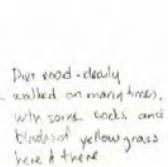 Dirt road - clearly
walked on many times,
with some rocks and
blades of yellow grass
here & there